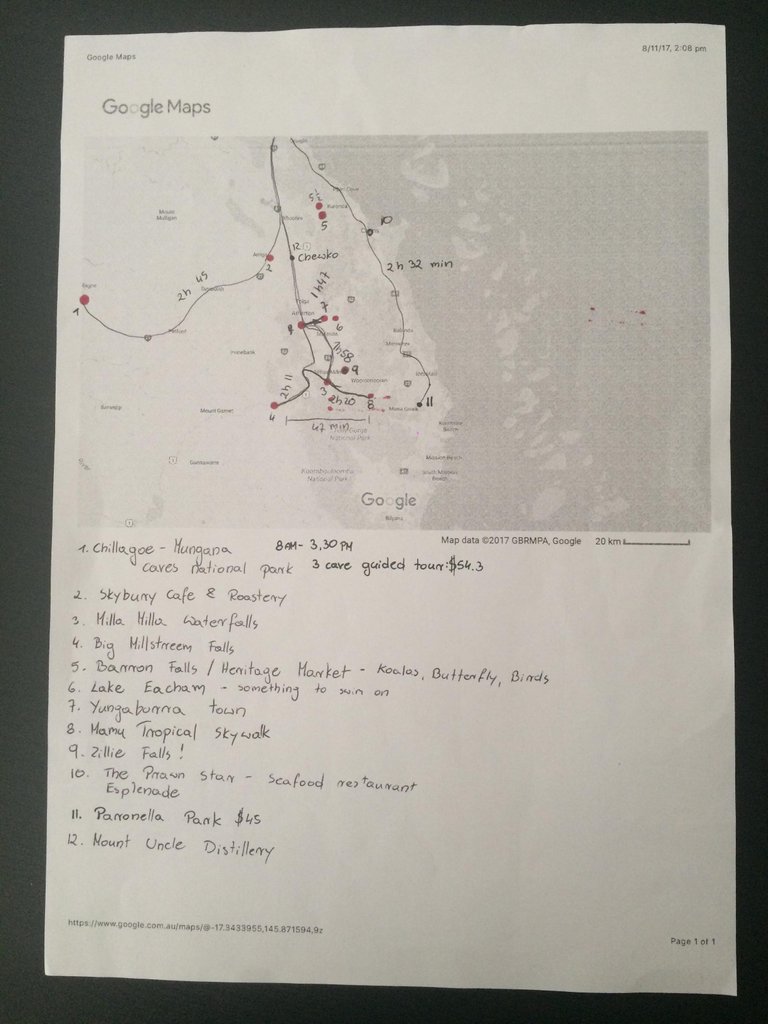 Google Maps
8/11/17, 2:08 pm
Google Maps
Mount
Mulligan
5½
Kuranda
5
10
12
Chewko
2
2h 45
2h 32 min
1
1h47
Atherton
7
6
1h58
9
2h 11
3
2h20
8
4
11
Mount Garnet
47 min
Gorge
National Park
Koombooloomba
National Park
South Mission
Beach
Google
Map data ©2017 GBRMPA, Google 20 km
1. Chillagoe - Mungana 8AM - 3,30 PM
caves national park 3 cave guided tour: $54.3
2. Skybury Cafe & Roastery
3. Milla Milla Waterfalls
4. Big Millstreem Falls
5. Barron Falls / Heritage Market - Koalas, Butterfly, Birds
6. Lake Eacham - something to swim on
7. Yungaburra town
8. Mamu Tropical Skywalk
9. Zillie Falls!
10. The Prawn Star - Seafood restaurant
Esplenade
11. Parronella Park $45
12. Mount Uncle Distillery
https://www.google.com.au/maps/@-17.3433955,145.871594,9z
Page 1 of 1